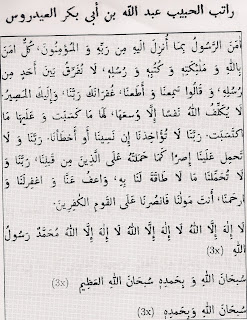 راتب الحبيب عبد الله بن أبي بكر العيدروس
آمَنَ الرَّسُولُ بِمَا أُنْزِلَ اِلَيْهِ مِن رَبِّهِ وَ الْمُؤمِنُونَ، كُلٌّ آمَنَ
بِاللهِ وَ مَلٰئِكَتِهِ وَ كُتُبِهِ وَ رُسُلِهِ، لَا نُفَرِّقُ بَيْنَ أَحَدٍ مِن
رُسُلِهِ، وَ قَالُوا سَمِعْنَا وَ أَطَعْنَا، غُفْرَانَكَ رَبَّنَا، وَ إِلَيْكَ الْمَصِيْرُ.
لَا يُكَلِّفُ اللهُ نَفْسًا إِلَّا وُسْعَهَا، لَهَا مَا كَسَبَتْ وَ عَلَيْهَا مَا
اكْتَسَبَت. رَبَّنَا لَا تُؤَاخِذْنَا إِن نَسِيْنَا أَو أَخْطَأْنَا. رَبَّنَا وَ لَا
تَحْمِل عَلَيْنَا إِصْرًا كَمَا حَمَلْتَهُ عَلَى الَّذِينَ مِن قَبْلِنَا. رَبَّنَا وَ
لَا تُحَمِّلْنَا مَا لَا طَاقَةَ لَنَا بِهِ، وَاعفُ عَنَّا وَ اغفِرلَنَا وَ
ارحَمنَا، أَنتَ مَولٰنَا فَانصُرنَا عَلَى القَومِ الكٰفِرِينَ.
لَا إِلٰهَ إِلَّا اللهُ لَا إِلٰهَ إِلَّا اللهُ لَا إِلٰهَ إِلَّا اللهُ مُحَمَّدٌ رَسُولُ
اللهِ (3x)
سُبحَانَ اللهِ وَ بِحَمدِهِ سُبحَانَ اللهِ العَظِيمِ (3x)
سُبحَانَ اللهِ وَبِحَمدِهِ (3x)